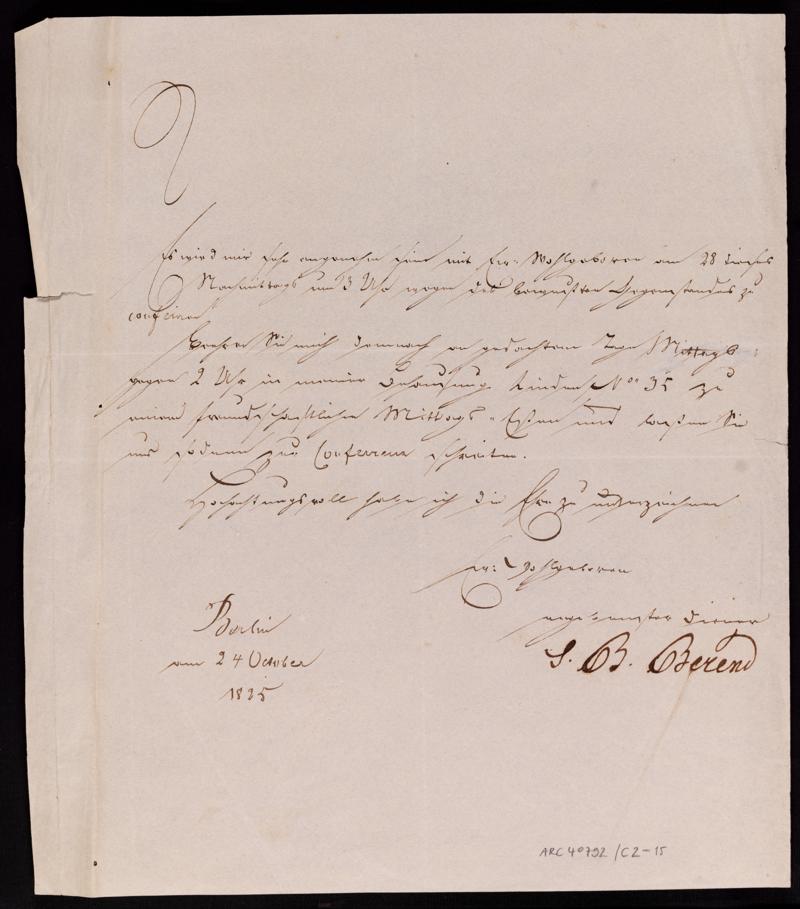 Es wird mir sehr angenehm sein mit Ew: Wohlgeboren am 28 dieses
Nachmittags um 3 Uhr wegen des bewußten Gegenstandes zu
conferiren
Beehren Sie mich demnach an gedachtem Tage Mittags
gegen 2 Uhr in meiner Behausung Linden No 35 zu
einem freundschaftlichen Mittags-Essen und lassen Sie
uns sodann zur Conferenz schreiten.
Hochachtungsvoll habe ich die Ehre zu unterzeichnen
Ew: Wohlgeboren
ergebenster Diener
S. B. Berend
Berlin
am 24 October
1835
ARC 4° 792 / C2-15